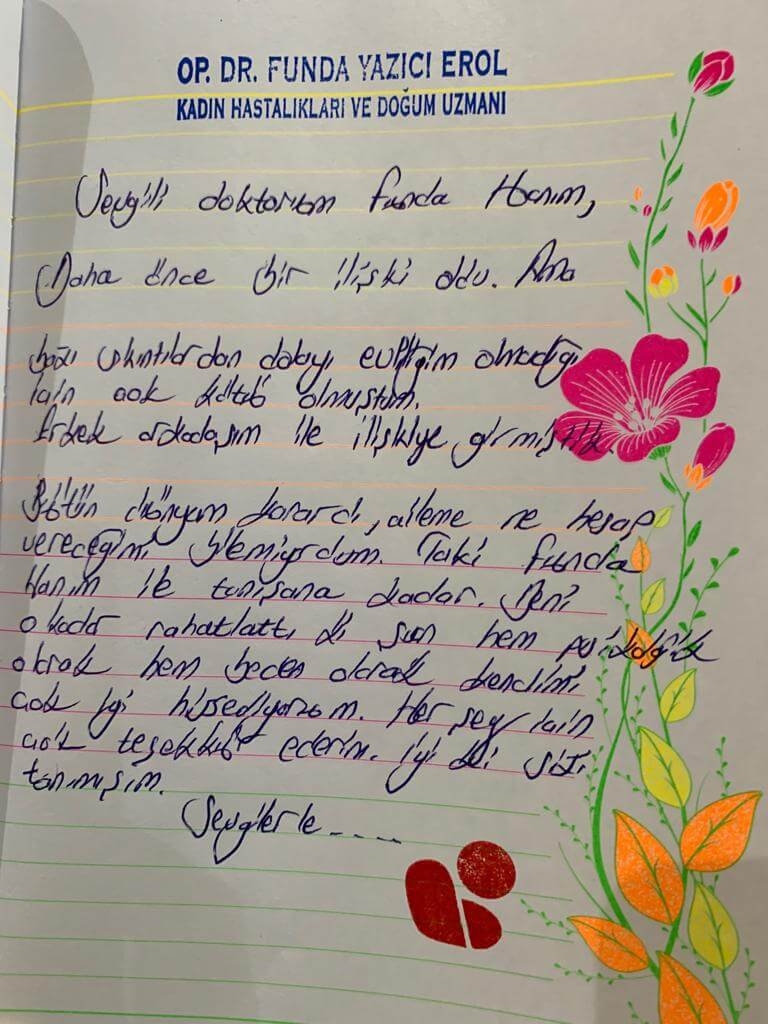 OP. DR. FUNDA YAZICI EROL
KADIN HASTALIKLARI VE DOĞUM UZMANI
Sevgili doktorum Funda Hanım,
Daha önce bir ilişki oldu. Ama
bazı sıkıntılardan dolayı evliliğim olmadığı
için çok kötü olmuştum.
Erkek arkadaşım ile ilişkiye girmiştik.
Bütün dünyam karardı, aileme ne hesap
vereceğimi bilemiyrdum. Taki Funda
Hanım ile tanışana kadar. Beni
okadar rahatlattı ki şuan hem psikolojik
olarak hem beden olarak kendimi
çok iyi hissediyorum. Herşey için
çok teşekkür ederim. iyi ki sizi
tanımışım.
Sevgilerle.....